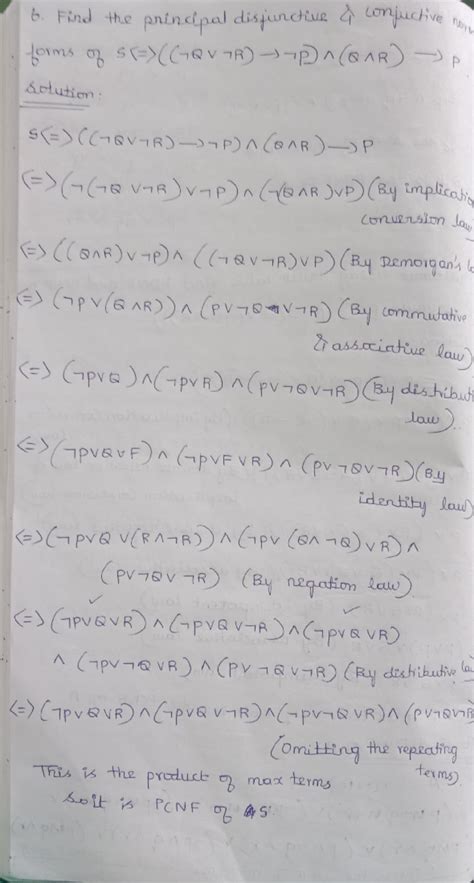 6. Find the principal disjunctive & conjuctive
forms of S<=>((¬Q∨¬R)→¬P)∧(Q∧R)→P
Solution:
S<=>((¬Q∨¬R)→¬P)∧(Q∧R)→P
<=>(¬(¬Q∨¬R)∨¬P)∧(¬(Q∧R)∨P)(By implicatio
conversion law
<=>((Q∧R)∨¬P)∧((¬Q∨¬R)∨P)(By Demorgan's
<=>(¬P∨(Q∧R))∧(P∨¬Q∨¬R)(By commutative
& associative law)
<=>(¬P∨Q)∧(¬P∨R)∧(P∨¬Q∨¬R)(By distributi
law).
<=>(¬P∨Q∨F)∧(¬P∨F∨R)∧(P∨¬Q∨¬R)(By
identity law)
<=>(¬P∨Q∨(R∧¬R))∧(¬P∨(Q∧¬Q)∨R)∧
(P∨¬Q∨¬R) (By negation law)
<=>(¬P∨Q∨R)∧(¬P∨Q∨¬R)∧(¬P∨Q∨R)
∧(¬P∨¬Q∨R)∧(P∨¬Q∨¬R)(By distributive la
<=>(¬P∨Q∨R)∧(¬P∨Q∨¬R)∧(¬P∨¬Q∨R)∧(P∨¬Q∨¬R)
(omitting the repeating
terms)
This is the product of max terms
so it is PCNF of S